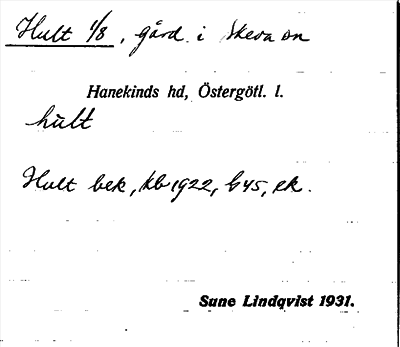 Hult 1/8, gård i Skeva sn
Hanekinds hd, Östergötl. l.
hult
Hult bek, kb 1922, G45, ek.
Sune Lindqvist 1931.